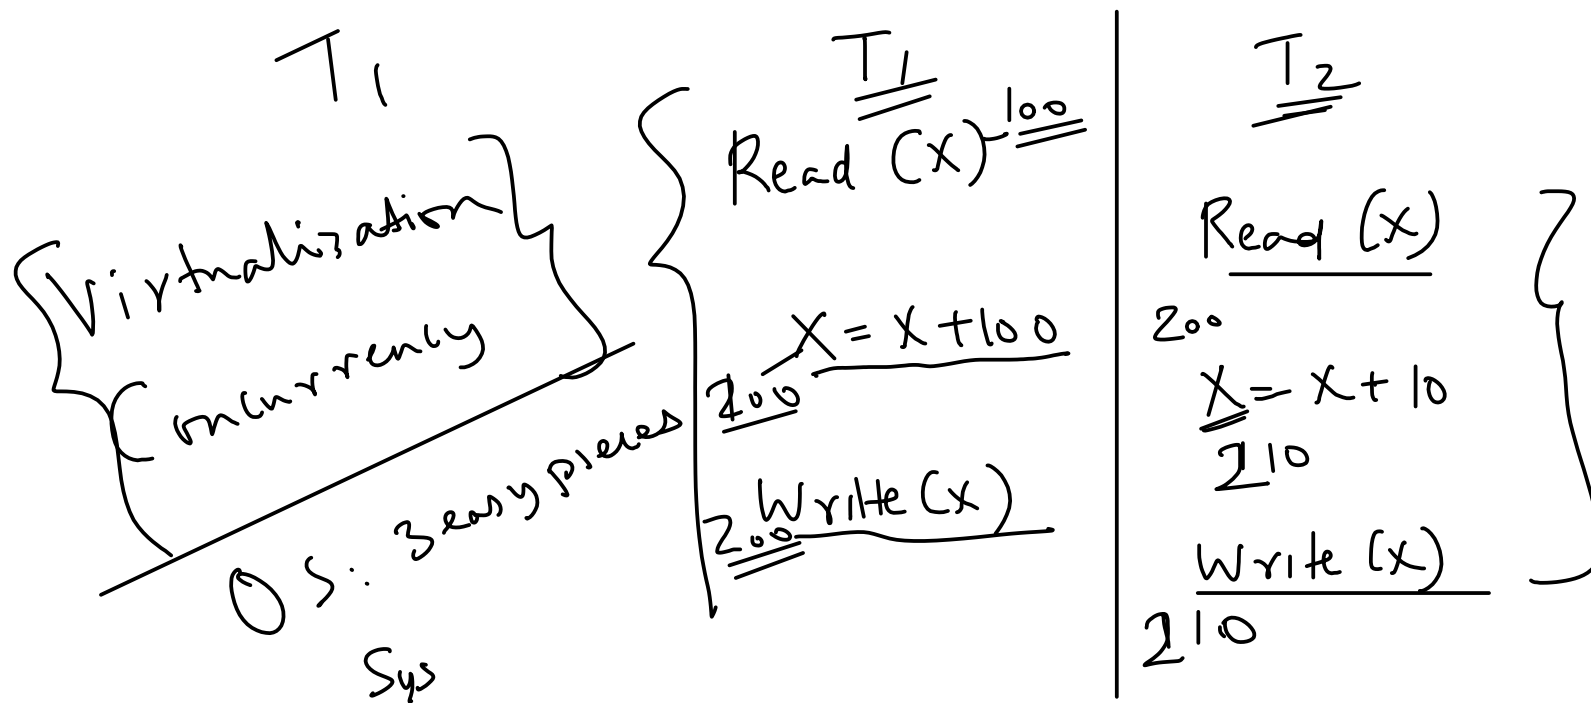 T1
Virtualization
Concurrency
OS: 3 easy pieces
Sys
T1
Read (X) 100
X = X + 100
200
Write (X)
200
T2
Read (X)
200
X = X + 10
210
Write (X)
210